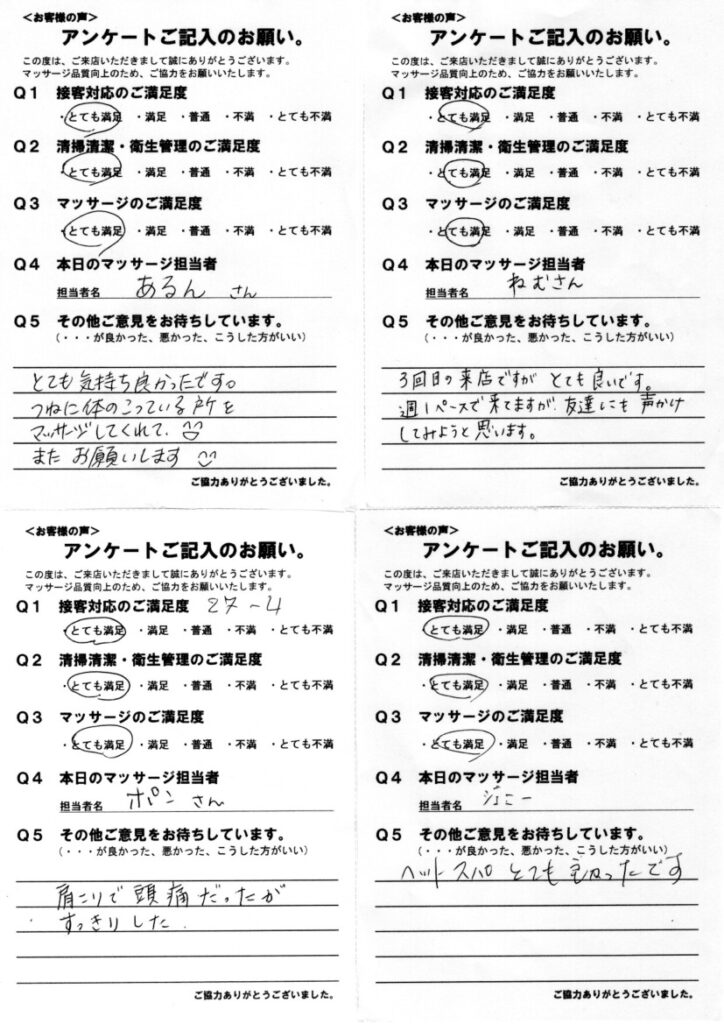 ＜お客様の声＞
アンケートご記入のお願い。
この度は、ご来店いただきまして誠にありがとうございます。
マッサージ品質向上のため、ご協力をお願いいたします。
Q1 接客対応のご満足度
・とても満足 ・満足 ・普通 ・不満 ・とても不満
Q2 清掃清潔・衛生管理のご満足度
・とても満足 ・満足 ・普通 ・不満 ・とても不満
Q3 マッサージのご満足度
・とても満足 ・満足 ・普通 ・不満 ・とても不満
Q4 本日のマッサージ担当者
担当者名 あるん さん
Q5 その他ご意見をお待ちしています。
（・・・が良かった、悪かった、こうした方がいい）
とても気持ち良かったです。
つねに体のこっている所を
マッサージしてくれて、
また お願いします
ご協力ありがとうございました。
＜お客様の声＞
アンケートご記入のお願い。
この度は、ご来店いただきまして誠にありがとうございます。
マッサージ品質向上のため、ご協力をお願いいたします。
Q1 接客対応のご満足度
・とても満足 ・満足 ・普通 ・不満 ・とても不満
Q2 清掃清潔・衛生管理のご満足度
・とても満足 ・満足 ・普通 ・不満 ・とても不満
Q3 マッサージのご満足度
・とても満足 ・満足 ・普通 ・不満 ・とても不満
Q4 本日のマッサージ担当者
担当者名 ねむさん
Q5 その他ご意見をお待ちしています。
（・・・が良かった、悪かった、こうした方がいい）
3回目の来店ですが とても良いです。
週1ペースで来てますが、友達にも声かけ
してみようと思います。
ご協力ありがとうございました。
＜お客様の声＞
アンケートご記入のお願い。
この度は、ご来店いただきまして誠にありがとうございます。
マッサージ品質向上のため、ご協力をお願いいたします。
Q1 接客対応のご満足度 27-4
・とても満足 ・満足 ・普通 ・不満 ・とても不満
Q2 清掃清潔・衛生管理のご満足度
・とても満足 ・満足 ・普通 ・不満 ・とても不満
Q3 マッサージのご満足度
・とても満足 ・満足 ・普通 ・不満 ・とても不満
Q4 本日のマッサージ担当者
担当者名 ポン さん
Q5 その他ご意見をお待ちしています。
（・・・が良かった、悪かった、こうした方がいい）
肩こりで頭痛だったが
すっきりした.
ご協力ありがとうございました。
＜お客様の声＞
アンケートご記入のお願い。
この度は、ご来店いただきまして誠にありがとうございます。
マッサージ品質向上のため、ご協力をお願いいたします。
Q1 接客対応のご満足度
・とても満足 ・満足 ・普通 ・不満 ・とても不満
Q2 清掃清潔・衛生管理のご満足度
・とても満足 ・満足 ・普通 ・不満 ・とても不満
Q3 マッサージのご満足度
・とても満足 ・満足 ・普通 ・不満 ・とても不満
Q4 本日のマッサージ担当者
担当者名 ジェニー
Q5 その他ご意見をお待ちしています。
（・・・が良かった、悪かった、こうした方がいい）
ヘットスパ とても良かったです
ご協力ありがとうございました。